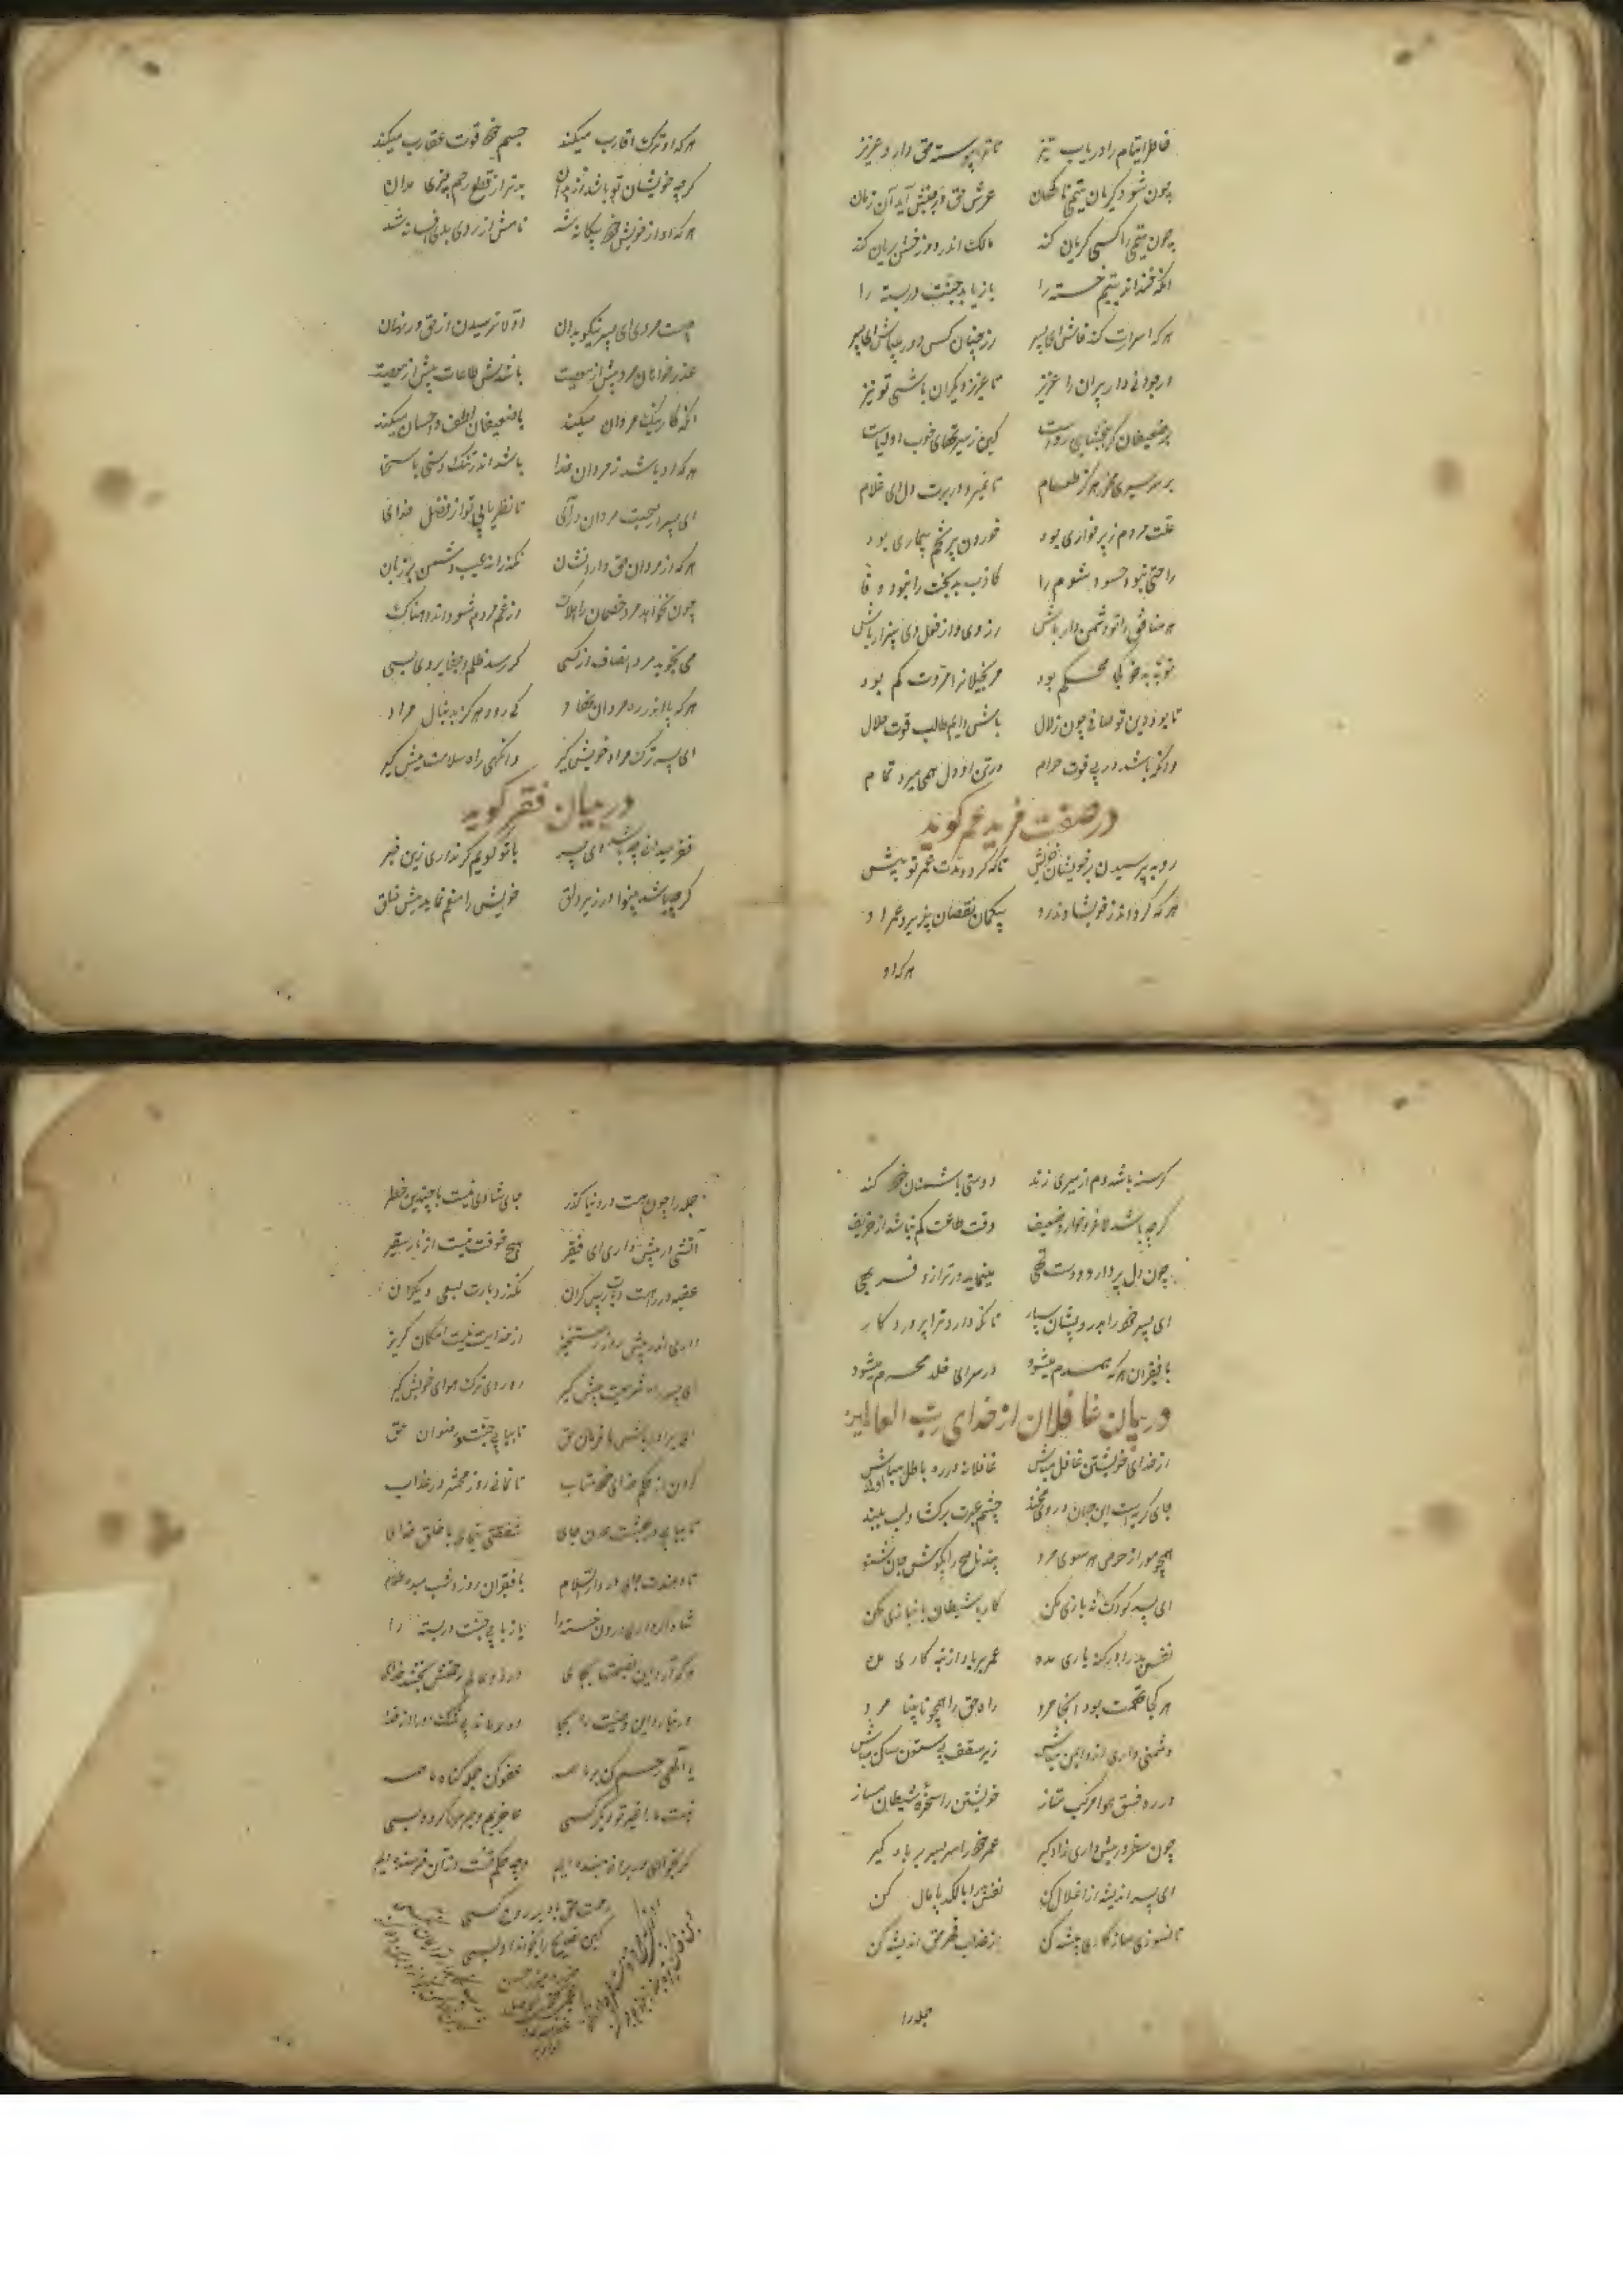 خاطر ایتام را دریاب نیز تا ترا پیوسته حق دارد عزیز
چون شود گریان یتیمی ناگهان عرش حق در جنبش آید آن زمان
چون یتیمی را کسی گریان کند مالک اندر دوزخش بریان کند
آنکه خنداند یتیم خسته را باز یابد جنت در بسته را
هر که اسرارت کند فاش ای پسر از چنان کس دور میباش ای پسر
در جوانی دار پیران را عزیز تا عزیز دیگران باشی تو نیز
بر ضعیفان گر ببخشایی رواست کین ز سیرتهای خوب اولیاست
بر سر سیری مخور هرگز طعام تا نمیرد در برت دل ای غلام
علت مردم ز پر خواری بود خوردن پر تخم بیماری بود
راحتی نبود حسود شوم را کاذب بدبخت را نبود وفا
هر منافق را تو دشمن دار باش از وی و از فعل وی بیزار باش
توبه بد خو کی محکم بود مر بخیلانرا مروت کم بود
تا بود دین تو صافی چون زلال باش دایم طالب قوت حلال
وانکه باشد در پی قوت حرام در تن او دل همی میرد تمام
در صفت مزید عمر گوید
رو به پرسیدن بر خویشان خویش تا که گردد مدت عمر تو بیش
هر که گرداند ز خویشاوند رو بیگمان نقصان پذیرد عمر او
هر که او
هر که او ترک اقارب میکند جسم خود قوت عقارب میکند
گرچه خویشان تو باشند از بدان بدتر از قطع رحم چیزی مدان
هر که او از خویش خود بیگانه شد نامش از روی بدی افسانه شد
چیست مردی ای پسر نیکو بدان اولا ترسیدن از حق در نهان
عذر خواهان مرد پیش از معصیت باشدش طاعات بیش از معصیت
آنکه کار نیک مردان میکند با ضعیفان لطف و احسان میکند
هر که او باشد ز مردان خدا باشد اندر تنگ دستی با سخا
ای پسر در صحبت مردان درآی تا نظر یابی تو از فضل خدای
هر که از مردان حق دارد نشان نگذراند عیب دشمن بر زبان
چون نخواهد مرد خصمان را هلاک از غم مردم شود اندوهناک
می نجوید مرد انصاف از کسی گر رسد ظلم و جفا بر وی بسی
هر که پا اندر ره مردان نهاد کی رود هرگز بدنبال مراد
ای پسر ترک مراد خویش گیر وانگهی راه سلامت پیش گیر
در بیان فقر گوید
فقر میدانی چه باشد ای پسر با تو گویم گر نداری زین خبر
گرچه باشد بینوا در زیر دلق خویش را منعم نماید پیش خلق
گرسنه باشد دم از سیری زند دوستی با دشمنان خود کند
گرچه باشد لاغر و خوار و ضعیف وقت طاعت کم نباشد از حریف
چون دل پر دارد و دست تهی مینماید در ترازو فربهی
ای پسر خود را بدرویشان سپار تا نگه دارد ترا پروردگار
با فقیران هر که همدم میشود در سرای خلد محرم میشود
در بیان غافلان از خدای رب العالمین
از خدای خویشتن غافل مباش غافلانه در ره باطل مباش
جای گریست این جهان در وی مخند چشم عبرت برگشا و لب ببند
همچو مور از حرص هر سوی مرو پند ناصح را بگوش جان شنو
ای پسر کودک نه بازی مکن کار با شیطان بانبازی مکن
نفس بد را در گنه یاری مده عمر بر باد از تبه کاری مده
هر کجا تهمت بود آنجا مرو راه حق را همچو نابینا مرو
دشمنی داری ازو ایمن مباش زیر سقف بی ستون ساکن مباش
در ره فسق و هوا مرکب متاز خویشتن را سخره شیطان مساز
چون سفر در پیش داری زاد گیر عمر خود را سربسر بر باد گیر
ای پسر اندیشه از اغلال کن نفس را با لگد پامال کن
تا نسوزی سازگاری پیشه کن از عذاب قهر حق اندیشه کن
جمله را
جمله را چون هست در دنیا گذر جای شادی نیست با چندین خطر
آتشی در پیش داری ای فقیر هیچ خوفت نیست از نار سعیر
عقبه در راهست و بارت بس گران نگذرد بارت بسعی دیگران
داری اندر پیش روز رستخیز از خدایت نیست امکان گریز
ای پسر راه شریعت پیش گیر رو ره ترک هوای خویش گیر
ای برادر باش با فرمان حق تا بیابی جنت و رضوان حق
گردن از حکم خدای خود متاب تا نمانی روز محشر در عذاب
تا بیابی در بهشت عدن جای شفقتی بنمای با خلق خدای
تا دهندت جای در دار السلام با فقیران روز و شب میده طعام
شاد اگر داری درون خسته را باز یابی جنت در بسته را
هر که آرد این نصیحتها بجای در دو عالم رحمتش بخشد خدای
ور نیارد این وصیت را بجا دور ماند بی شک او از خدا
یا الهی رحم کن بر ما همه عفو کن جمله گناه ما همه
نیست ما را غیر تو دیگر کسی عاجزیم و جرمها کرده بسی
گر بخوانی ور برانی بنده ایم هر چه حکم تست از آن خرسنده ایم
رحمت حق باد بر روح کسی
کین نصایح را بخواند او بسی